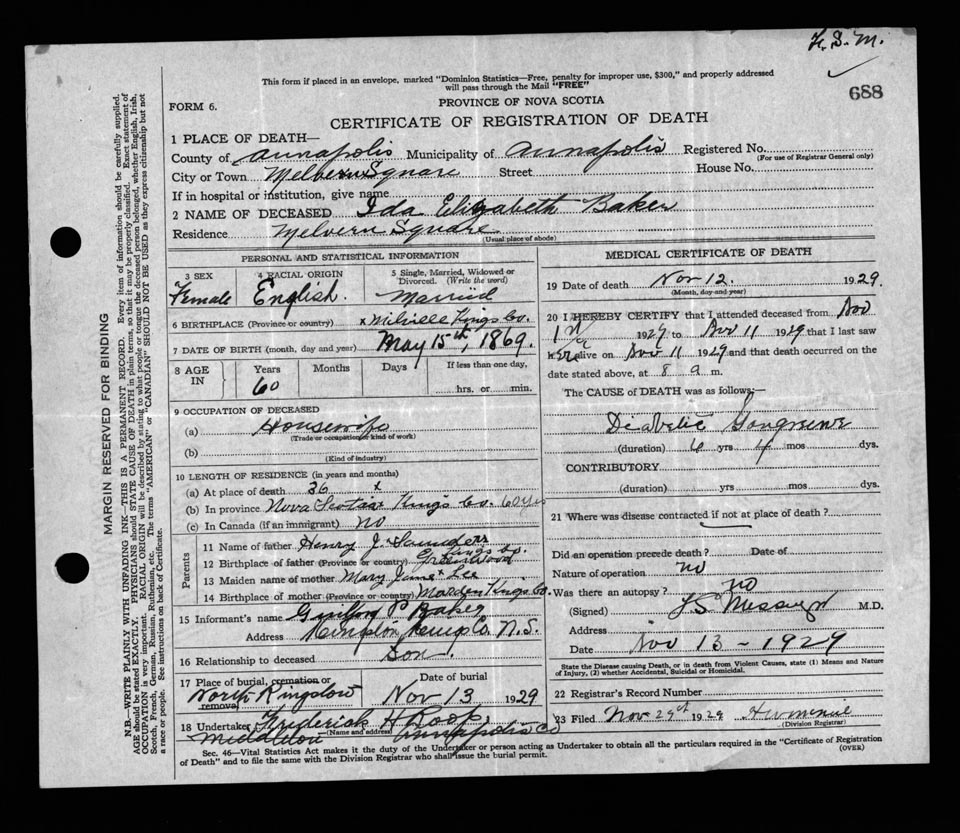 F. S. M.
688
This form if placed in an envelope, marked "Dominion Statistics—Free, penalty for improper use, $300," and properly addressed
will pass through the Mail "FREE"
FORM 6.
PROVINCE OF NOVA SCOTIA
CERTIFICATE OF REGISTRATION OF DEATH
MARGIN RESERVED FOR BINDING
N.B.—WRITE PLAINLY WITH UNFADING INK—THIS IS A PERMANENT RECORD. Every item of information should be carefully supplied.
AGE should be stated EXACTLY. PHYSICIANS should STATE CAUSE OF DEATH in plain terms, so that it may be properly classified. Exact statement of
OCCUPATION is very important. RACIAL ORIGIN will be described by stating to what people or tongue the deceased person belonged, whether English, Irish,
Scotch, French, German, Russian, Ruthenian, etc. The terms "AMERICAN" or "CANADIAN" SHOULD NOT BE USED as they express citizenship but not
a race or people. See instructions on back of Certificate.
1 PLACE OF DEATH—
County of Annapolis Municipality of Annapolis Registered No.
(For use of Registrar General only)
City or Town Melvern Square Street House No.
If in hospital or institution, give name
2 NAME OF DECEASED Ida Elizabeth Baker
Residence Melvern Square
(Usual place of abode)
PERSONAL AND STATISTICAL INFORMATION
3 SEX Female
4 RACIAL ORIGIN English.
5 Single, Married, Widowed or Divorced. (Write the word) Married
6 BIRTHPLACE (Province or country) x Melville Kings Co.
7 DATE OF BIRTH (month, day and year) May 15th, 1869.
8 AGE IN Years 60 Months Days If less than one day, hrs. or min.
9 OCCUPATION OF DECEASED
(a) Housewife
(Trade or occupation or kind of work)
(b)
(Kind of industry)
10 LENGTH OF RESIDENCE (in years and months)
(a) At place of death 36 x
(b) In province Nova Scotia x Kings Co. 60 yrs
(c) In Canada (if an immigrant) no
Parents
11 Name of father Henry J. Saunders
12 Birthplace of father (Province or country) Greenwood Kings Co.
13 Maiden name of mother Mary Jane Lee
14 Birthplace of mother (Province or country) Morden Kings Co.
15 Informant's name P. Baker
Address Kingston, Kings Co. N.S.
16 Relationship to deceased Son.
17 Place of burial, cremation or removal North Kingston
Date of burial Nov 13 1929
18 Undertaker Frederick H Roop,
(Name and address)
Middleton Annapolis Co
MEDICAL CERTIFICATE OF DEATH
19 Date of death Nov 12. 1929.
(Month, day and year)
20 I HEREBY CERTIFY that I attended deceased from Nov
1st 1929 to Nov 11 1929 that I last saw
her alive on Nov 11 1929 and that death occurred on the
date stated above, at 8 a m.
The CAUSE of DEATH was as follows:
Diabetic Gangrene
(duration) yrs 4 mos dys.
CONTRIBUTORY
(duration) yrs mos dys.
21 Where was disease contracted if not at place of death?
Did an operation precede death? Date of
Nature of operation no
Was there an autopsy? no
(Signed) M.D.
Address
Date Nov 13 - 1929
State the Disease causing Death, or in death from Violent Causes, state (1) Means and Nature
of Injury, (2) whether Accidental, Suicidal or Homicidal.
22 Registrar's Record Number
23 Filed Nov 1929
(Division Registrar)
Sec. 46—Vital Statistics Act makes it the duty of the Undertaker or person acting as Undertaker to obtain all the particulars required in the "Certificate of Registration
of Death" and to file the same with the Division Registrar who shall issue the burial permit. (OVER)